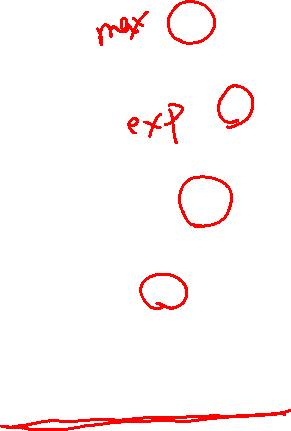 max
exp